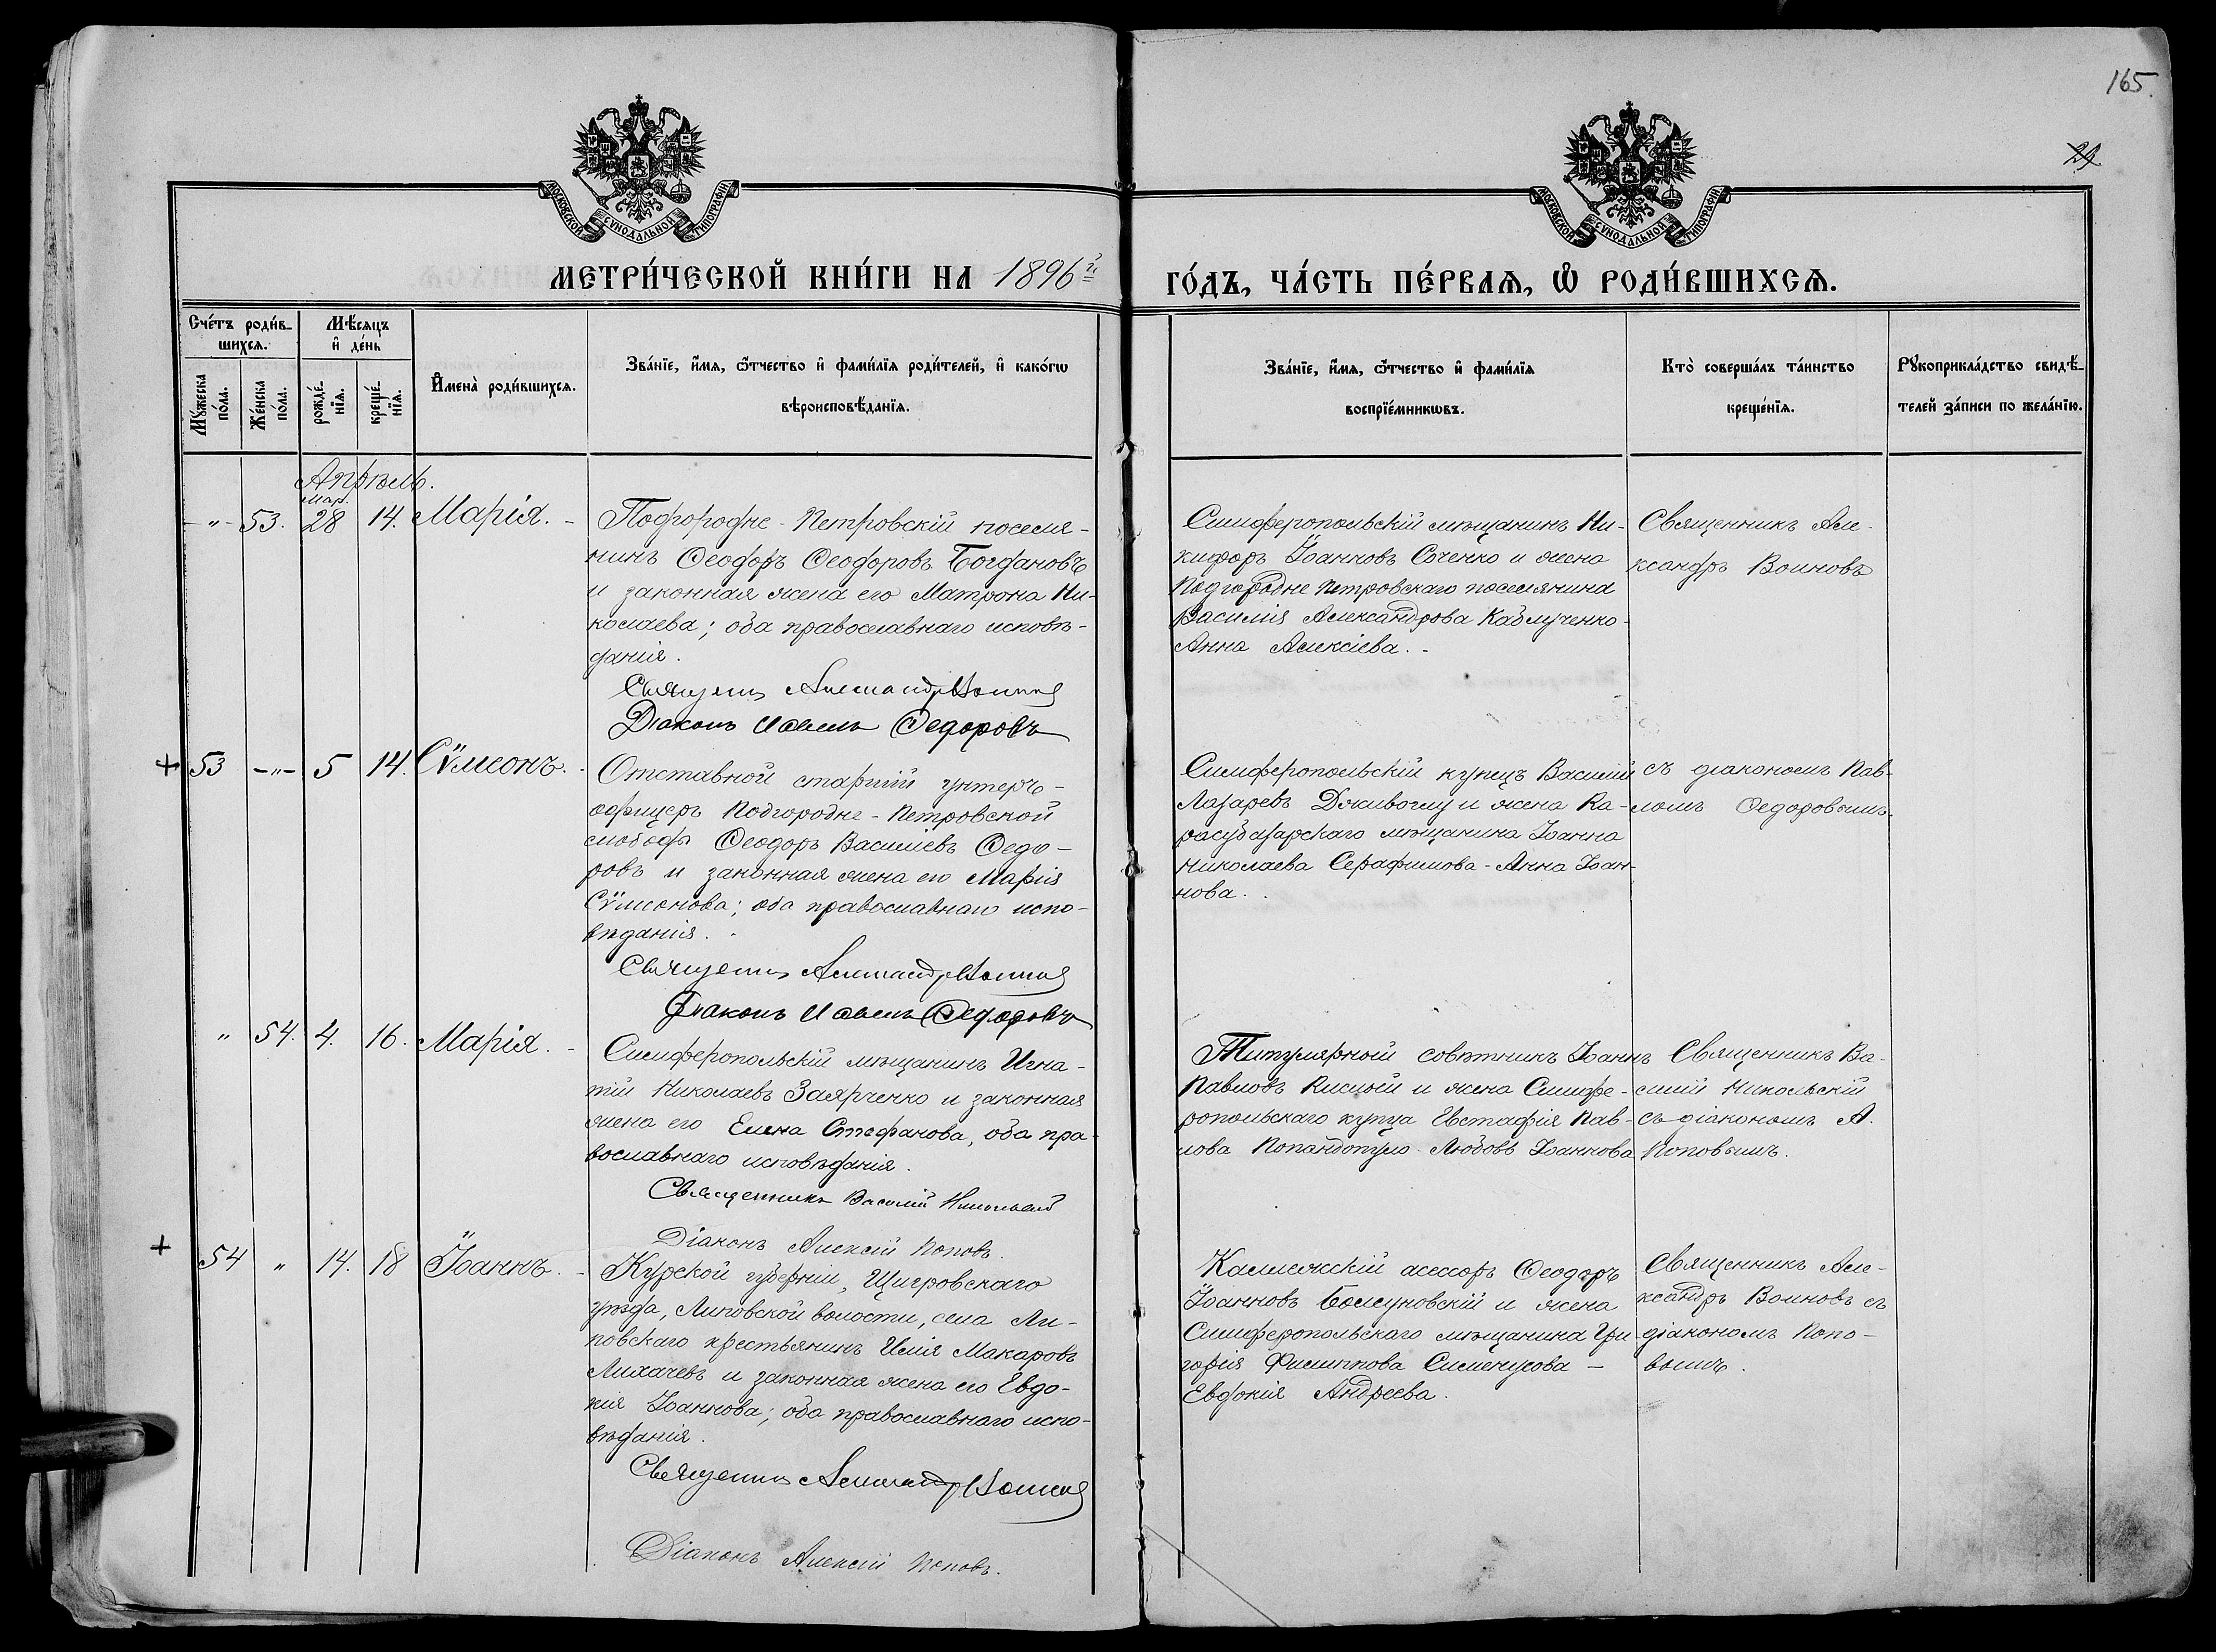 165.
29
МОСКОВСКОЙ СѴНОДАЛЬНОЙ ТИПОГРАФІИ
МОСКОВСКОЙ СѴНОДАЛЬНОЙ ТИПОГРАФІИ
МЕТРИ́ЧЕСКОЙ КНИ́ГИ НА 1896й
ГО́ДЪ, ЧА́СТЬ ПЕ́РВАѦ, Ѡ҆ РОДИ́ВШИХСѦ.
Сче́тъ роди́в-
шихсѧ.
Мѣ́сѧцъ
и҆ де́нь
Мꙋ́жеска
по́ла.
Же́нска
по́ла.
рожде́-
нїѧ.
креще́-
нїѧ.
И҆мена̀ роди́вшихсѧ.
Зва́нїе, и҆́мѧ, ѻ҆́тчество и҆ фами́лїѧ роди́телей, и҆ како́гѡ
вѣроисповѣ́данїѧ.
Зва́нїе, и҆́мѧ, ѻ҆́тчество и҆ фами́лїѧ
воспрїе́мникѡвъ.
Кто̀ соверша́лъ та́инство
креще́нїѧ.
Рꙋкоприкла́дство свидѣ́-
телей за́писи по жела́нїю.
Апрѣль.
Мар.
-"- 53. 28 14. Марія.
Подгородне-Петровскій поселя-
нинъ Ѳеодоръ Ѳеодоровъ Богдановъ
и законная жена его Матрона Ни-
колаева; оба православнаго исповѣ-
данія.
Священникъ Александръ Воиновъ
Діаконъ Павелъ Ѳедоровъ
Симферопольскій мѣщанинъ Ни-
кифоръ Іоанновъ Соченко и жена
Подгородне Петровскаго поселянина
Василія Александрова Каблученко-
Анна Алексіева.
Священникъ Але-
ксандръ Воиновъ
+ 53 -"- 5 14. Сѵмеонъ.
Отставной старшій унтеръ-
офицеръ Подгородне-Петровской
слободы Ѳеодоръ Васильевъ Ѳедо-
ровъ и законная жена его Марія
Сѵмеонова; оба православнаго испо-
вѣданія.
Священникъ Александръ Воиновъ
Діаконъ Павелъ Ѳедоровъ
Симферопольскій купецъ Василій
Лазаревъ Дживоглу и жена Ка-
расубазарскаго мѣщанина Іоанна
Николаева Серафимова-Анна Іоан-
нова.
съ діакономъ Пав-
ломъ Ѳедоровымъ.
" 54. 4. 16. Марія.
Симферопольскій мѣщанинъ Игна-
тій Николаевъ Заярченко и законная
жена его Елена Стефанова, оба пра-
вославнаго исповѣданія.
Священникъ Василій Никольскій
Діаконъ Алексій Поповъ.
Титулярный совѣтникъ Іоаннъ
Павловъ Кислый и жена Симфе-
ропольскаго купца Евстафія Пав-
лова Попандопуло Любовь Іоаннова
Священникъ Ва-
силій Никольскій
съ діакономъ А.
Поповымъ.
+ 54 " 14. 18 Іоаннъ.
Курской губерніи, Щигровскаго
уѣзда, Липовской волости, села Ли-
повскаго крестьянинъ Илія Макаровъ
Лихачевъ и законная жена его Евдо-
кія Іоаннова; оба православнаго испо-
вѣданія.
Священникъ Александръ Воиновъ
Діаконъ Алексій Поповъ.
Коллежскій асессоръ Ѳеодоръ
Іоанновъ и жена
Симферопольскаго мѣщанина Гри
горія Филиппова —
Евдокія Андреева.
Священникъ Але-
ксандръ Воиновъ съ
діакономъ Попо-
вымъ.